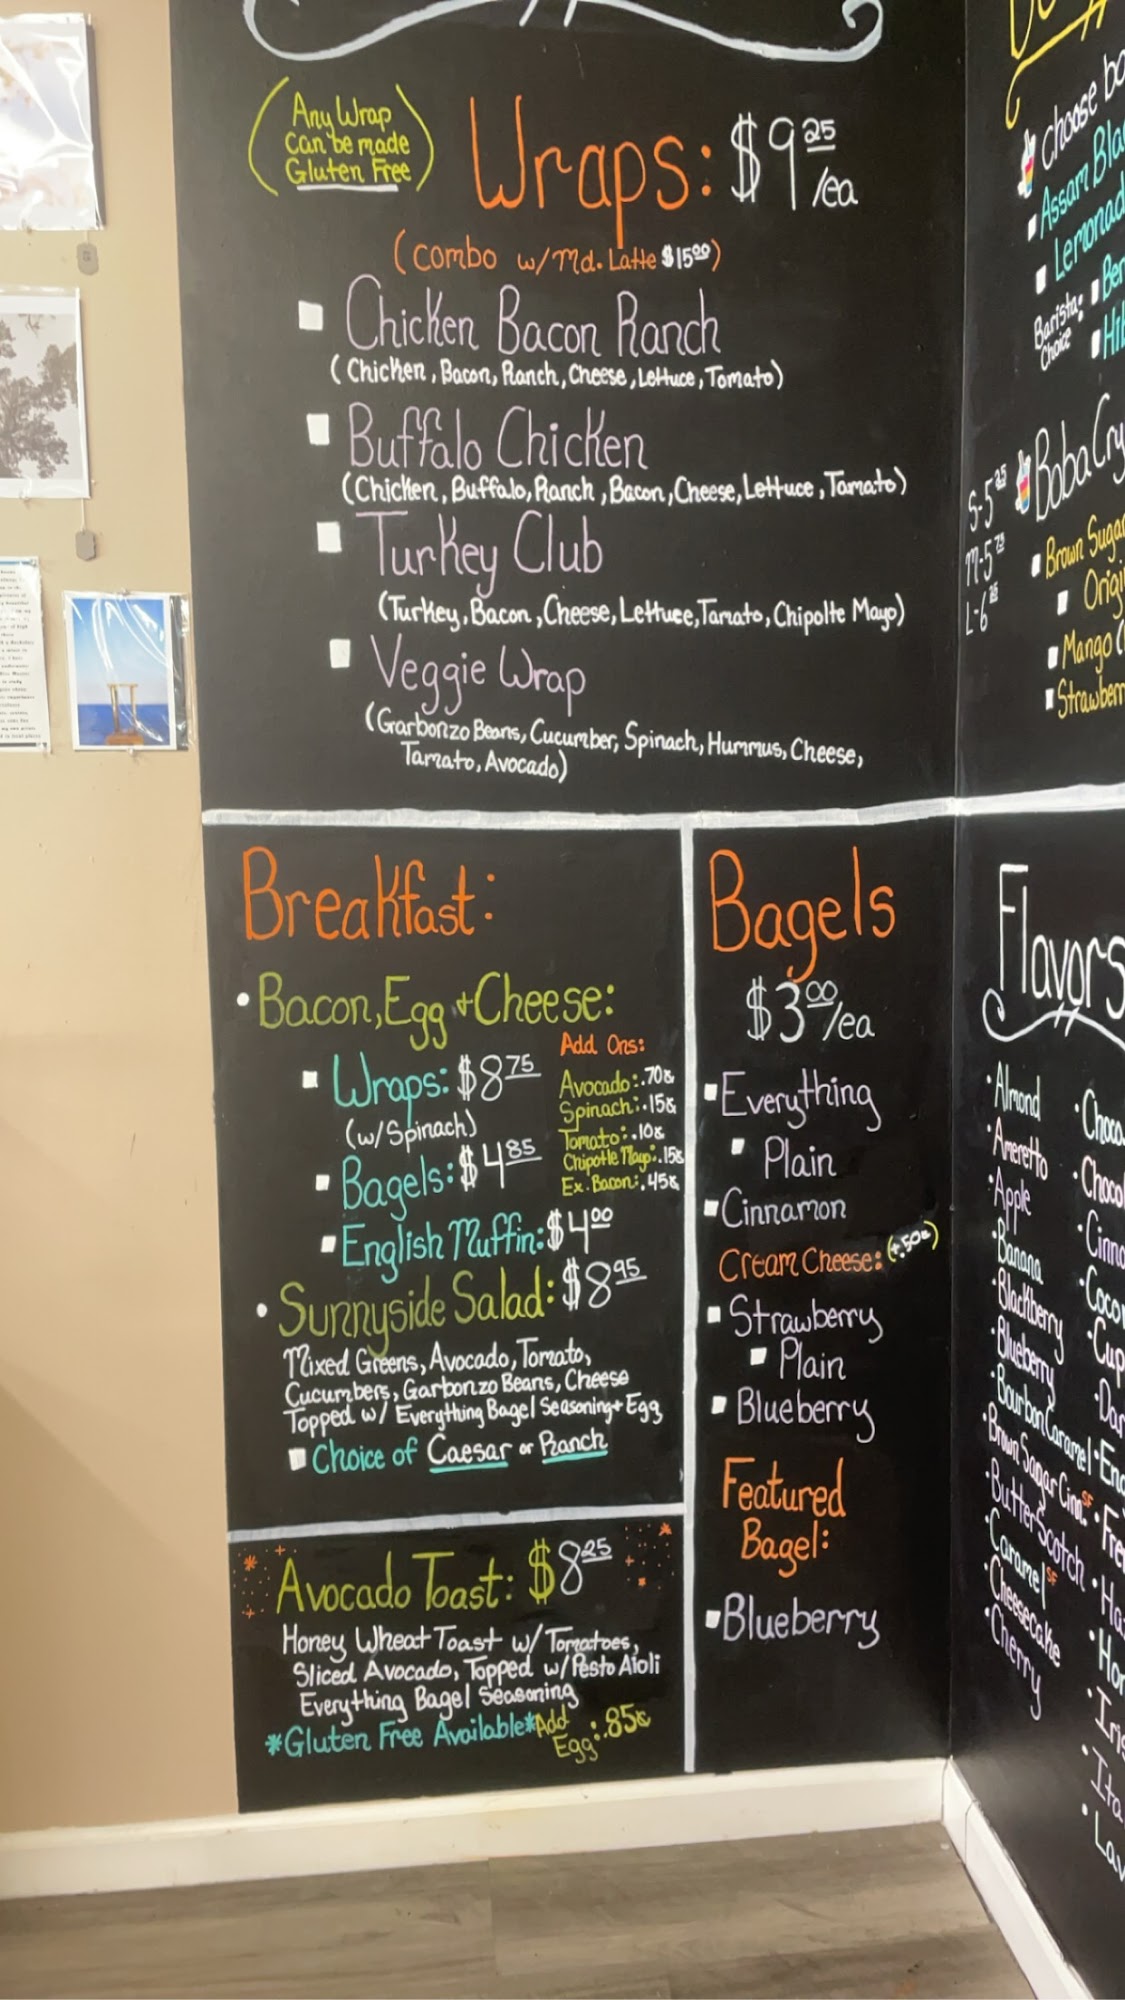 (Any Wrap
Can be made
Gluten Free)
Wraps: $9 25/ea
(Combo w/Md. Latte $15 00)
Chicken Bacon Ranch
(Chicken, Bacon, Ranch, Cheese, Lettuce, Tomato)
Buffalo Chicken
(Chicken, Buffalo, Ranch, Bacon, Cheese, Lettuce, Tomato)
Turkey Club
(Turkey, Bacon, Cheese, Lettuce, Tomato, Chipolte Mayo)
Veggie Wrap
(Garbonzo Beans, Cucumber, Spinach, Hummus, Cheese,
Tomato, Avocado)
Breakfast:
Bacon, Egg + Cheese:
Wraps: $8 75
(w/Spinach)
Bagels: $4 85
English Muffin: $4 00
Add Ons:
Avocado: .70¢
Spinach: .15¢
Tomato: .10¢
Chipotle Mayo: .15¢
Ex. Bacon: .45¢
Sunnyside Salad: $8 95
Mixed Greens, Avocado, Tomato,
Cucumbers, Garbonzo Beans, Cheese
Topped w/ Everything Bagel Seasoning + Egg
Choice of Caesar or Ranch
Avocado Toast: $8 25
Honey Wheat Toast w/ Tomatoes,
Sliced Avocado, Topped w/ Pesto Aioli
Everything Bagel Seasoning
*Gluten Free Available*
Add
Egg: .85¢
Bagels
$3 00/ea
Everything
Plain
Cinnamon
Cream Cheese: (+.50¢)
Strawberry
Plain
Blueberry
Featured
Bagel:
Blueberry
Choose
Assam
Lemonad
Barista:
Choice
Boba
S-5 25
M-5 75
L-6 25
Brown Sugar
Mango
Strawber
Flavors
Almond
Ameretto
Apple
Banana
Blackberry
Blueberry
Bourbon Caramel
Brown Sugar Cinn. SF
Butterscotch
Caramel SF
Cheesecake
Cherry